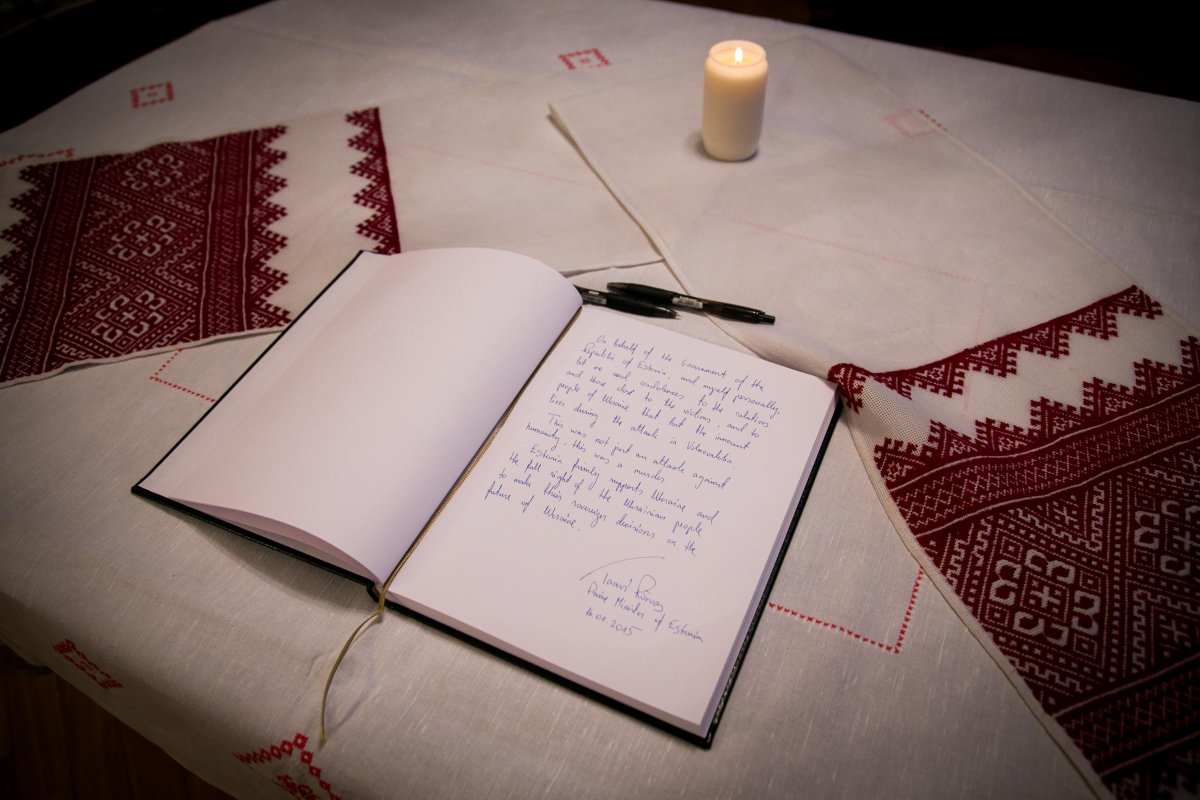 On behalf of the Government of the
Republic of Estonia, and myself personally,
let me send condolences to the relatives
and those close to the victims, and to
people of Ukraine that lost the innocent
lives during the attack in Volnovakha.
This was not just an attack against
humanity, this was a murder.
Estonia firmly supports Ukraine and
the full right of the Ukrainian people
to make their sovereign decisions on the
future of Ukraine.
Taavi Rõivas
Prime Minister of Estonia
.01.2015